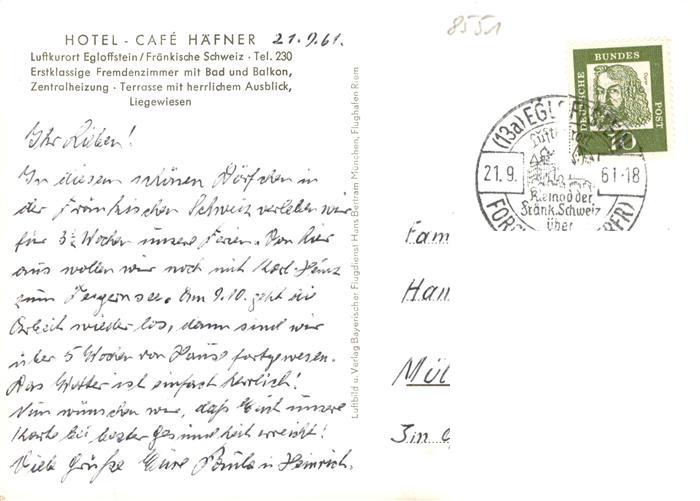 8551
HOTEL - CAFÉ HÄFNER 21.9.61.
Luftkurort Egloffstein/Fränkische Schweiz · Tel. 230
Erstklassige Fremdenzimmer mit Bad und Balkon,
Zentralheizung · Terrasse mit herrlichem Ausblick,
Liegewiesen
Ihr Lieben!
In diesem schönen Dörfchen in
der Fränkischen Schweiz verleben wir
für 3½ Wochen unsere Ferien. Von hier
aus wollen wir noch mit Karl-Heinz
zum Tegernsee. Am 9.10. geht die
Arbeit wieder los, dann sind wir
über 5 Wochen von Haus fortgewesen.
Das Wetter ist einfach herrlich!
Nun wünschen wir, daß Euch unsere
Karte bei bester Gesundheit erreicht!
Viele Grüße Eure Paula u. Heinrich.
Luftbild u. Verlag Bayerischer Flugdienst Hans Bertram München, Flughafen Riem
DEUTSCHE BUNDES POST
10
(13a) EGLOFFSTEIN
21.9. 61-18
Kleinod der
Fränk. Schweiz
über
Fam
Han
Mül